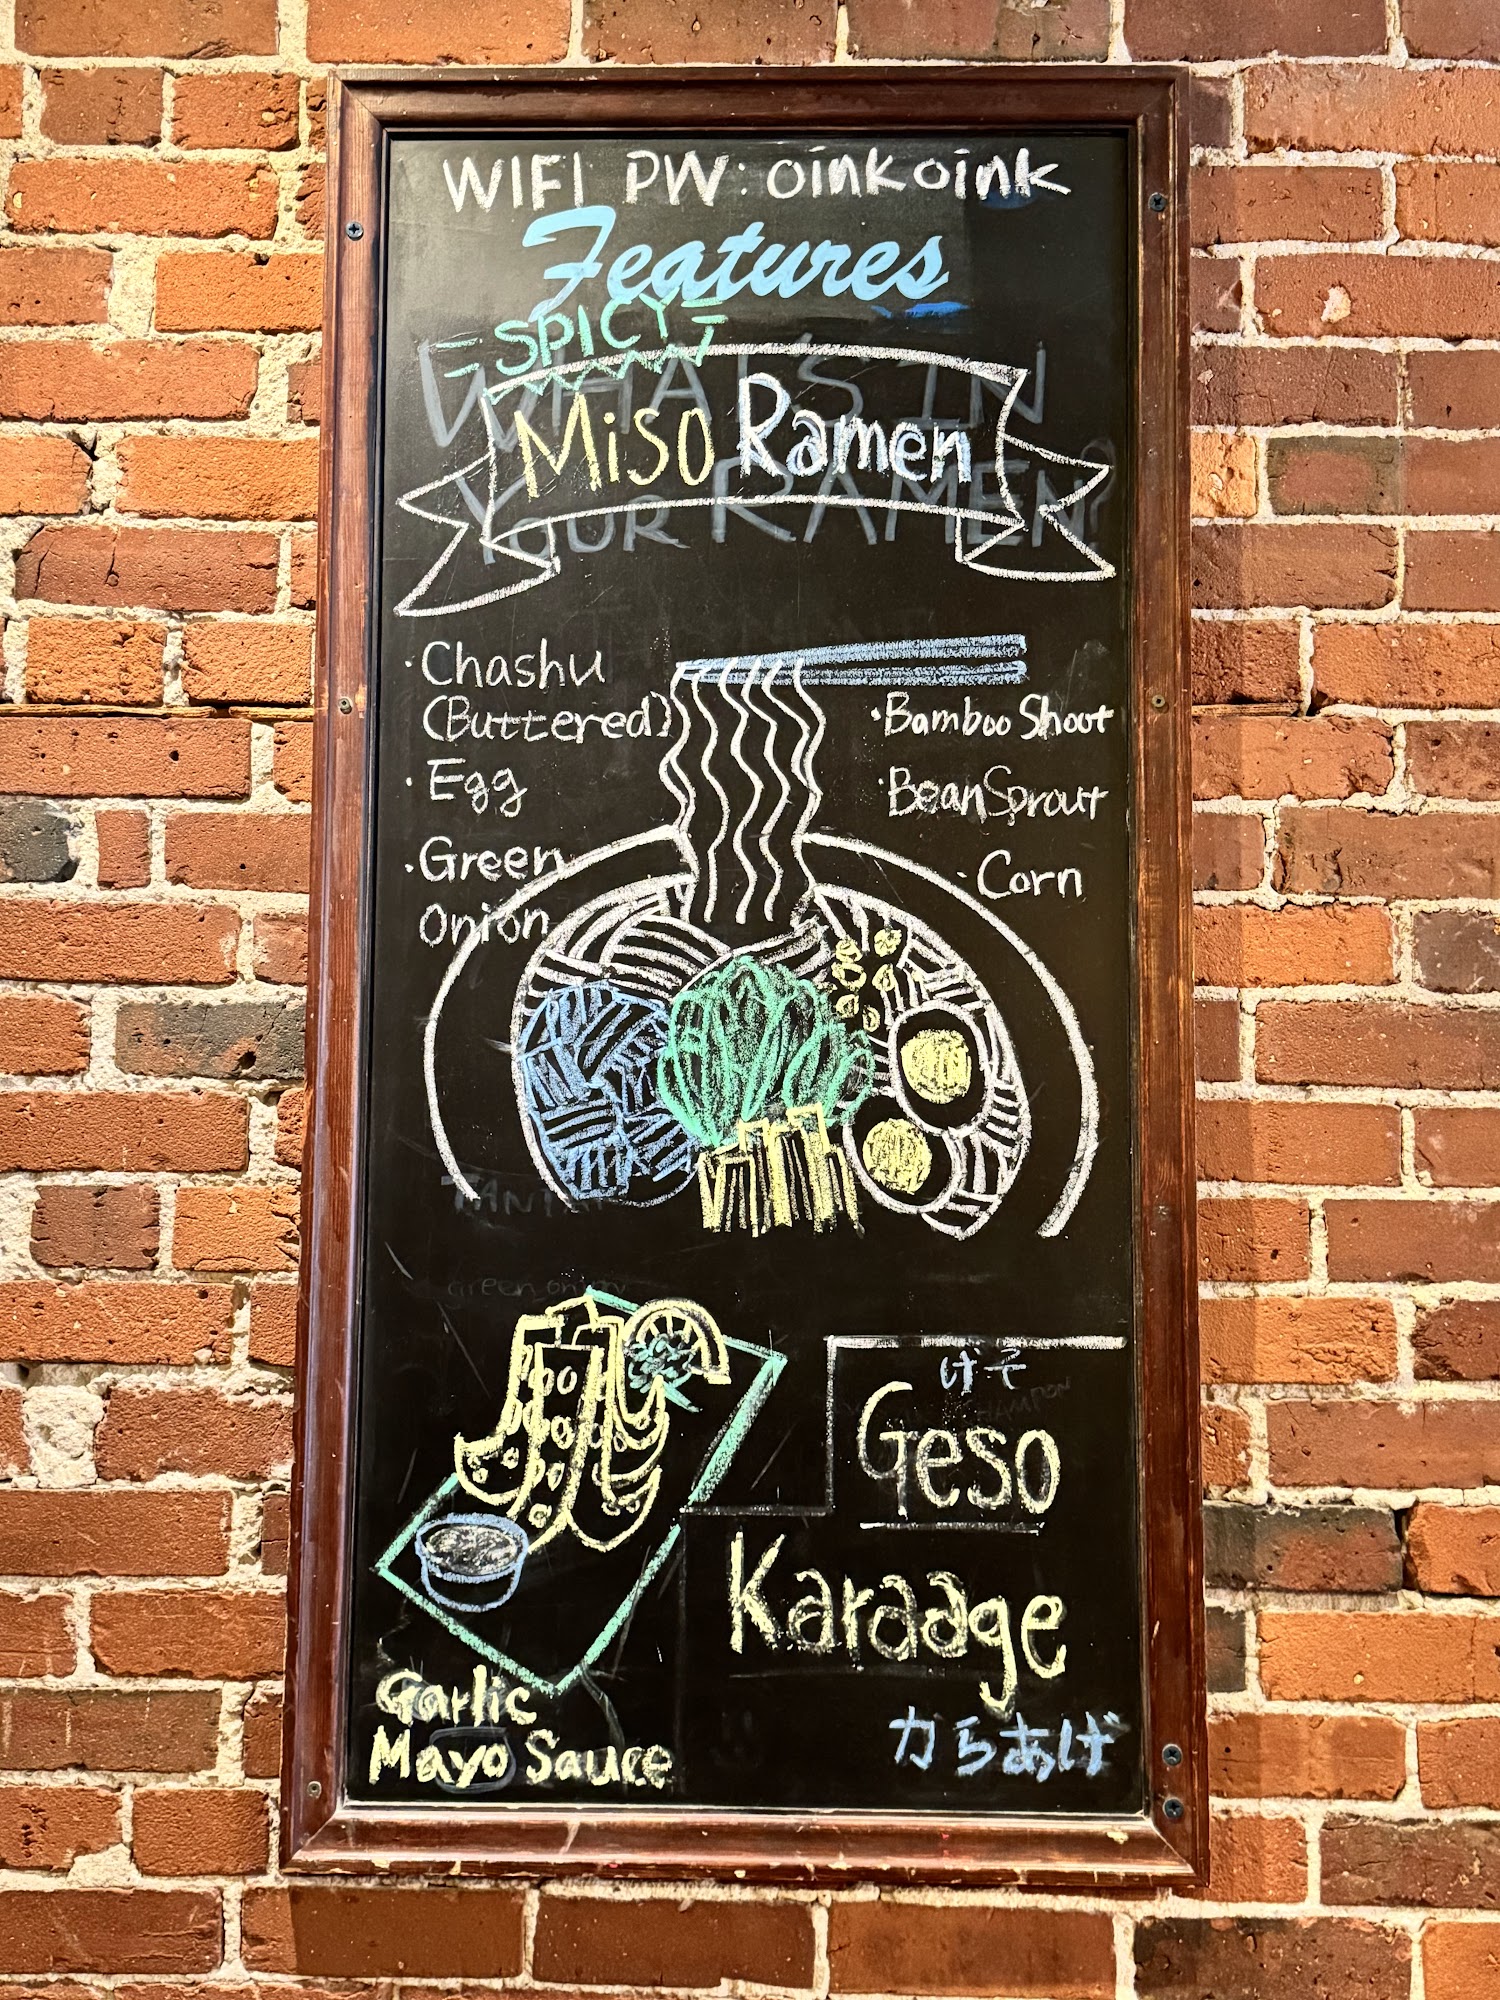 WIFI PW: oinkoink
Features
SPICY
WHAT'S IN
Miso Ramen
YOUR RAMEN?
· Chashu
(Buttered)
· Egg
· Green
Onion
· Bamboo Shoot
· Bean Sprout
· Corn
green onion
げそ
Geso
Karaage
からあげ
Garlic
Mayo Sauce